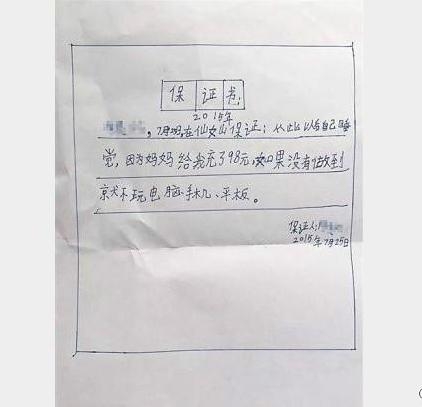 保证书
2015年
在仙女山保证；从此以后自己睡
觉，因为妈妈给我充了98元，如果没有做到
就不玩电脑、手机、平板。
保证人：
2015年7月25日